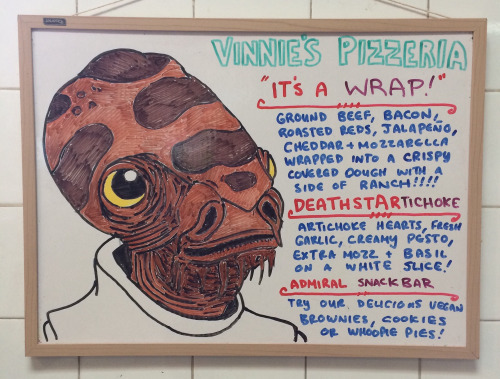 VINNIE'S PIZZERIA
"IT'S A WRAP!"
GROUND BEEF, BACON,
ROASTED REDS, JALAPEÑO,
CHEDDAR + MOZZARELLA
WRAPPED INTO A CRISPY
COVERED DOUGH WITH A
SIDE OF RANCH!!!!
DEATHSTARTICHOKE
ARTICHOKE HEARTS, FRESH
GARLIC, CREAMY PESTO,
EXTRA MOZZ + BASIL
ON A WHITE SLICE!
ADMIRAL SNACKBAR
TRY OUR DELICIOUS VEGAN
BROWNIES, COOKIES
OR WHOOPIE PIES!